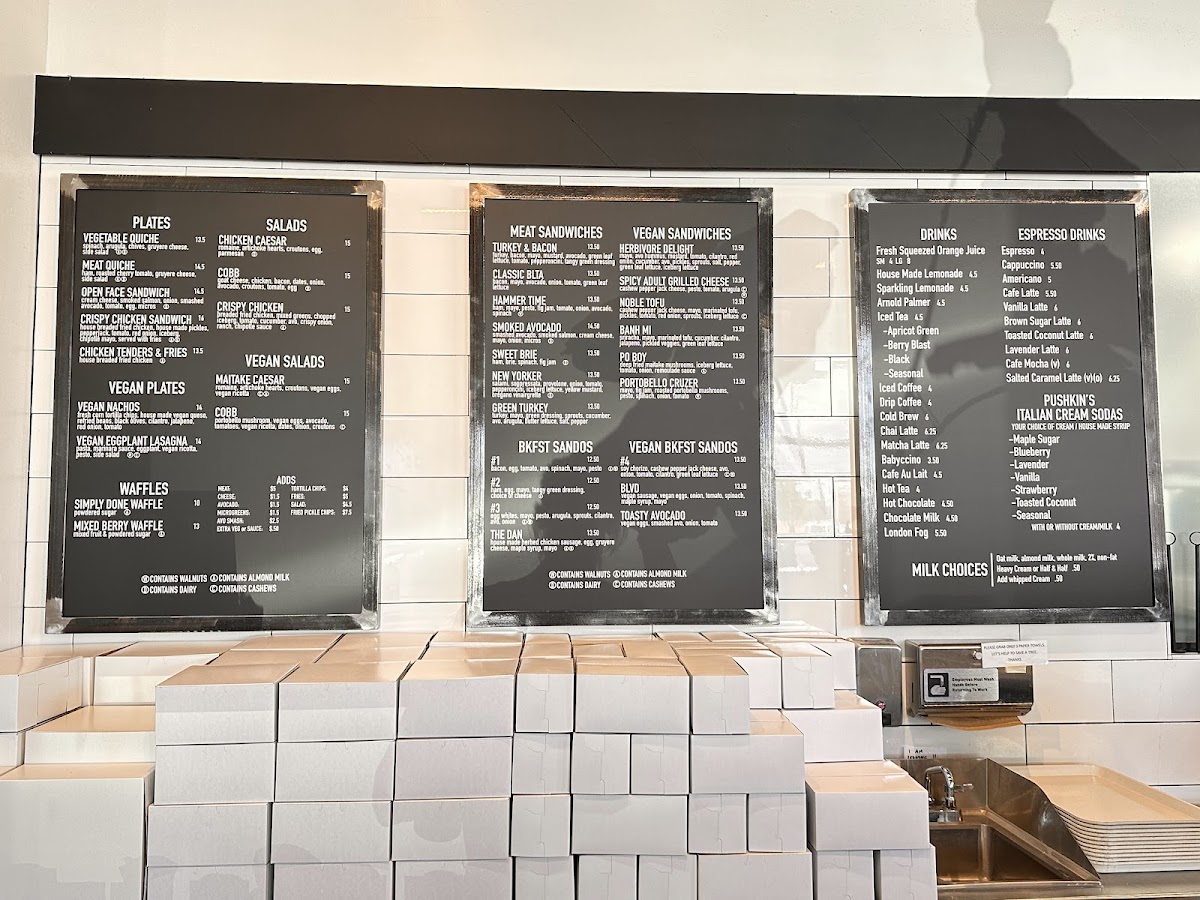 PLATES
VEGETABLE QUICHE 13.5
spinach, arugula, chives, gruyere cheese,
side salad
MEAT QUICHE 14.5
ham, roasted cherry tomato, gruyere cheese,
side salad
OPEN FACE SANDWICH 14.5
cream cheese, smoked salmon, onion, smashed
avocado, tomato, egg, micros
CRISPY CHICKEN SANDWICH 16
house breaded fried chicken, house made pickles,
pepperjack, tomato, red onion, iceberg,
chipotle mayo, served with fries
CHICKEN TENDERS & FRIES 13.5
house breaded fried chicken
VEGAN PLATES
VEGAN NACHOS 14
fresh corn tortilla chips, house made vegan queso,
refried beans, black olives, cilantro, jalapeno,
red onion, tomato
VEGAN EGGPLANT LASAGNA 14
pasta, marinara sauce, eggplant, vegan ricotta,
pesto, side salad
WAFFLES
SIMPLY DONE WAFFLE 10
powdered sugar
MIXED BERRY WAFFLE 13
mixed fruit & powdered sugar
SALADS
CHICKEN CAESAR 15
romaine, artichoke hearts, croutons, egg,
parmesan
COBB 15
goat cheese, chicken, bacon, dates, onion,
avocado, croutons, tomato, egg
CRISPY CHICKEN 15
breaded fried chicken, mixed greens, chopped
iceberg, tomato, cucumber, avo, crispy onion,
ranch, chipotle sauce
VEGAN SALADS
MAITAKE CAESAR 15
romaine, artichoke hearts, croutons, vegan eggs,
vegan ricotta
COBB 15
portobello mushroom, vegan eggs, avocado,
tomatoes, vegan ricotta, dates, onion, croutons
ADDS
MEAT: $5
CHEESE: $1.5
AVOCADO: $1.5
MICROGREENS: $1.5
AVO SMASH: $2.5
EXTRA VGR or SAUCE: $.50
TORTILLA CHIPS: $4
FRIES: $5
SALAD: $4.5
FRIED PICKLE CHIPS: $7.5
Ⓦ CONTAINS WALNUTS Ⓐ CONTAINS ALMOND MILK
Ⓓ CONTAINS DAIRY Ⓒ CONTAINS CASHEWS
MEAT SANDWICHES
TURKEY & BACON 13.50
turkey, bacon, mayo, mustard, avocado, green leaf
lettuce, tomato, pepperoncini, tangy green dressing
CLASSIC BLTA 13.50
bacon, mayo, avocado, onion, tomato, green leaf
lettuce
HAMMER TIME 13.50
ham, gruyere, pesto, fig jam, tomato, onion, avocado,
spinach
SMOKED AVOCADO 14.50
smashed avocado, smoked salmon, cream cheese,
mayo, onion, micros
SWEET BRIE 13.50
ham, brie, spinach, fig jam
NEW YORKER 13.50
salami, soppressata, provolone, onion, tomato,
pepperoncinis, iceberg lettuce, yellow mustard,
oregano vinaigrette
GREEN TURKEY 13.50
turkey, mayo, green dressing, sprouts, cucumber,
avo, arugula, butter lettuce, salt, pepper
BKFST SANDOS
#1 12.50
bacon, egg, tomato, avo, spinach, mayo, pesto
#2 12.50
ham, egg, mayo, tangy green dressing,
choice of cheese
#3 12.50
egg whites, mayo, pesto, arugula, sprouts, cilantro,
avo, onion
THE DAN 12.50
house made herbed chicken sausage, egg, gruyere
cheese, maple syrup, mayo
VEGAN SANDWICHES
HERBIVORE DELIGHT 13.50
mayo, avo hummus, mustard, tomato, cilantro, red
onion, cucumber, avo, pickles, sprouts, salt, pepper,
green leaf lettuce, iceberg lettuce
SPICY ADULT GRILLED CHEESE 13.50
cashew pepper jack cheese, pesto, tomato, arugula
NOBLE TOFU 13.50
cashew pepper jack cheese, mayo, marinated tofu,
pickles, tomato, red onion, sprouts, iceberg lettuce
BANH MI 13.50
sriracha, mayo, marinated tofu, cucumber, cilantro,
jalapeno, pickled veggies, green leaf lettuce
PO BOY 13.50
deep fried maitake mushrooms, iceberg lettuce,
tomato, onion, remoulade sauce
PORTOBELLO CRUZER 13.50
mayo, fig jam, roasted portobello mushrooms,
pesto, spinach, onion, tomato
VEGAN BKFST SANDOS
#4 13.50
soy chorizo, cashew pepper jack cheese, avo,
onion, tomato, cilantro, green leaf lettuce
BLVD 13.50
vegan sausage, vegan eggs, onion, tomato, spinach,
maple syrup, mayo
TOASTY AVOCADO 13.50
vegan eggs, smashed avo, onion, tomato
Ⓦ CONTAINS WALNUTS Ⓐ CONTAINS ALMOND MILK
Ⓓ CONTAINS DAIRY Ⓒ CONTAINS CASHEWS
DRINKS
Fresh Squeezed Orange Juice
SM 4 LG 8
House Made Lemonade 4.5
Sparkling Lemonade 4.5
Arnold Palmer 4.5
Iced Tea 4.5
-Apricot Green
-Berry Blast
-Black
-Seasonal
Iced Coffee 4
Drip Coffee 4
Cold Brew 6
Chai Latte 6.25
Matcha Latte 6.25
Babyccino 3.50
Cafe Au Lait 4.5
Hot Tea 4
Hot Chocolate 4.50
Chocolate Milk 4.50
London Fog 5.50
ESPRESSO DRINKS
Espresso 4
Cappuccino 5.50
Americano 5
Cafe Latte 5.50
Vanilla Latte 6
Brown Sugar Latte 6
Toasted Coconut Latte 6
Lavender Latte 6
Cafe Mocha (v) 6
Salted Caramel Latte (v)(o) 6.25
PUSHKIN'S
ITALIAN CREAM SODAS
YOUR CHOICE OF CREAM / HOUSE MADE SYRUP
-Maple Sugar
-Blueberry
-Lavender
-Vanilla
-Strawberry
-Toasted Coconut
-Seasonal
WITH OR WITHOUT CREAM/MILK 4
MILK CHOICES
Oat milk, almond milk, whole milk, 2%, non-fat
Heavy Cream or Half & Half .50
Add whipped Cream .50
PLEASE GRAB ONLY 3 PAPER TOWELS
LET'S HELP TO SAVE A TREE.
THANKS
Employees Must Wash
Hands Before
Returning To Work
I AM